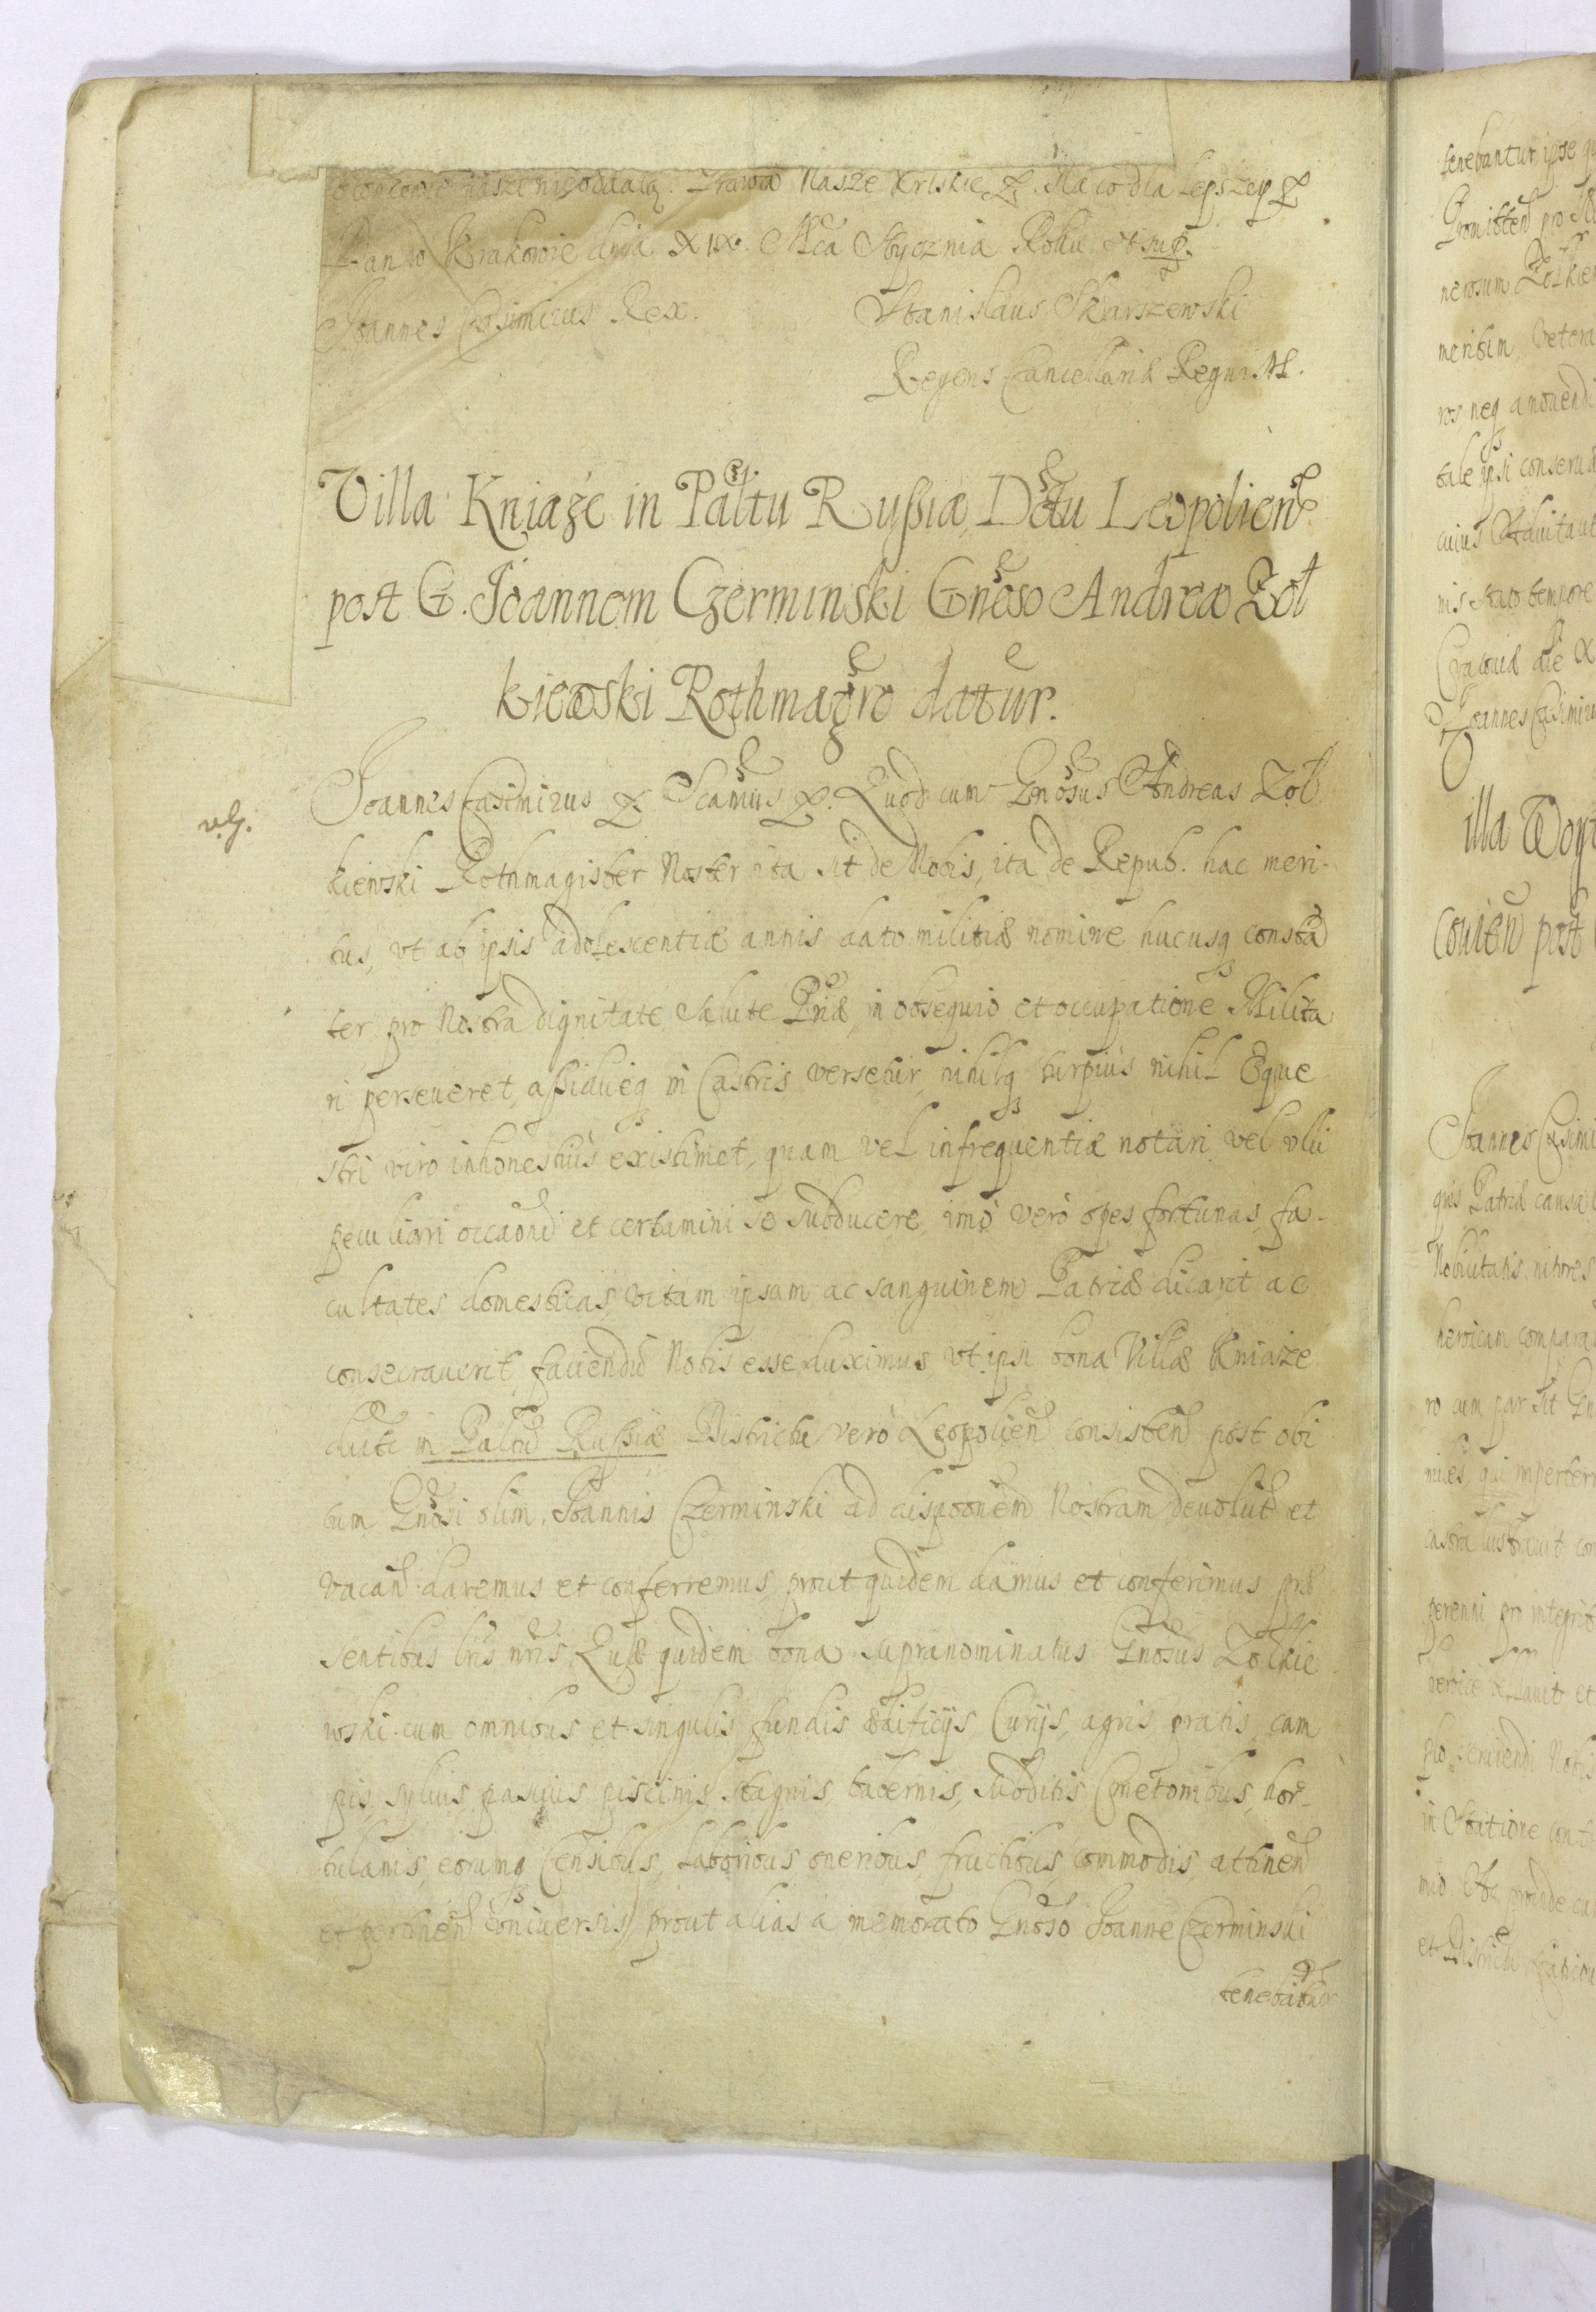 Prawa Nasze Krlskie &. Na co dla lepszey &
Dan w Krakowie dnia XIX. Mca Stycznia Roku ut sup.
Joannes Casimirus Rex. Stanislaus Skarszewski
Regens Cancellariæ Regni M.
Villa Kniaże in Paltu Russiæ, Dctu Leopolien̄
post G. Joannem Czerminski Gnoso Andreæ Zoł
kiewski Rothmagro datur.
v.g.
Joannes Casimirus &. Scamus &. Quod cum Gnosus Andreas Zoł
kiewski Rothmagister Noster ita sit de Nobis, ita de Repub. hac meri-
tus, vt ab ipsis adolescentiæ annis dato militiæ nomine hucusq constā
ter pro Nostra dignitate, salute Pnæ, in obsequio et occupatione Milita
ri perseueret, assidueq in Castris versetur, nihilq turpius nihil Eque
stri viro inhonestius existimet, quam vel infrequentiæ notari, vel vlli
peculiari occaoni et certamini se subducere, imò verò opes, fortunas, fa-
cultates domesticas, vitam ipsam ac sanguinem Patriæ dicarit ac
consecrauerit, faciendū Nobis esse duximus, vt ipsi bona Villæ Kniaże
dictæ in Paltū Russiæ Districtu verò Leopolien̄ consisten̄ post obi
tum Gnosi olim Joannis Czerminski ad dispoonem Nostram deuolut et
vacan̄ daremus et conferremus, prout quidem damus et conferimus præ
sentibus lris nris Quæ quidem bona supranominatus Gnosus Zolkie
wski cum omnibus et singulis fundis ædificijs, Curijs, agris, pratis, cam
pis, syluis, pascuis, piscinis, stagnis, tabernis, subditis Cmetonibus, hor-
tulanis, eorumq Censibus, laboribus oneribus, fructibus, commodis, attinen̄
et pertinen̄ vniuersis, prout alias à memorato Gnoso Joanne Czerminski
tenebātur
tenebantur, ipse
nerosum Zolkie
meritum, Vetera
ros neq amouendi
tale ipsi conserua
nis suo tempore
Cracouiæ die X
Joannes Casimirus
illa Woy
couien̄ post
Joannes Casimi
quis Patriæ causa
Nobilitatis nitores
heroicam compara
ro cum par sit Gn
castra lustrauit con
perenni pro integrit
in Statione cont
et Districtu